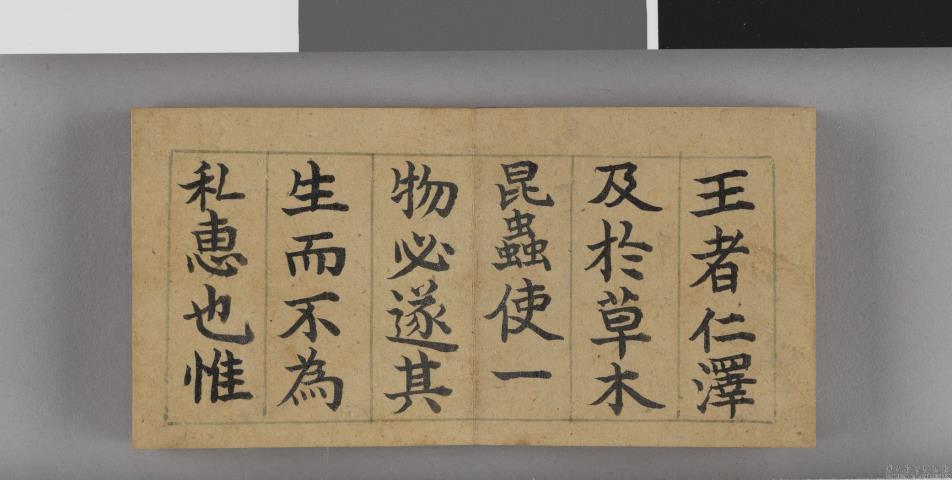 王者仁澤
及於草木
昆蟲使一
物必遂其
生而不為
私惠也惟